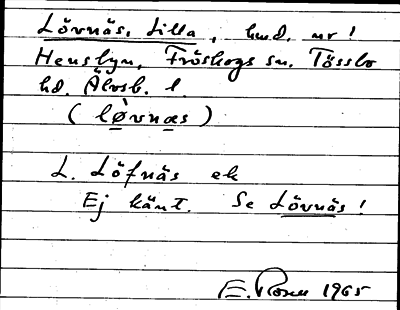 Lövnäs, Lilla, hmd. nr!
Henslyn, Fröskogs sn. Tössbo
hd. Älvsb. l.
(lø̀vnæs)
L. Löfnäs ek
Ej känt. Se Lövnäs!
E. Rosen 1965